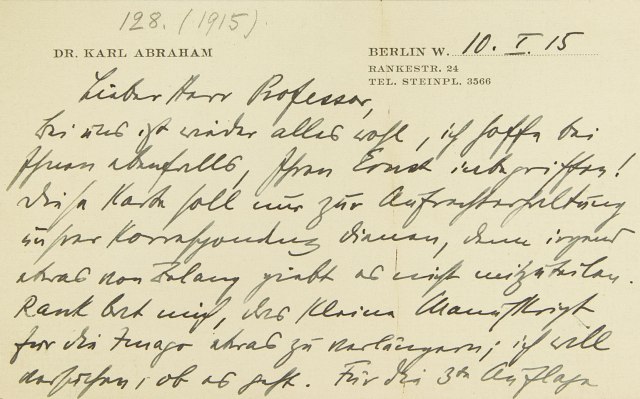 128. (1915).
DR. KARL ABRAHAM
BERLIN W. 10. I. 15
RANKESTR. 24
TEL. STEINPL. 3566
Lieber Herr Professor,
bei uns ist wieder alles wohl, ich hoffe bei
Ihnen ebenfalls, Ihren Ernst inbegriffen!
Diese Karte soll nur zur Aufrechterhaltung
unsrer Korrespondenz dienen, denn irgend
etwas von Belang giebt es nicht mitzuteilen.
Rank bat mich, das kleine Manuskript
für die Imago etwas zu verlängern; ich will
versuchen, ob es geht. Für die 3te Auflage